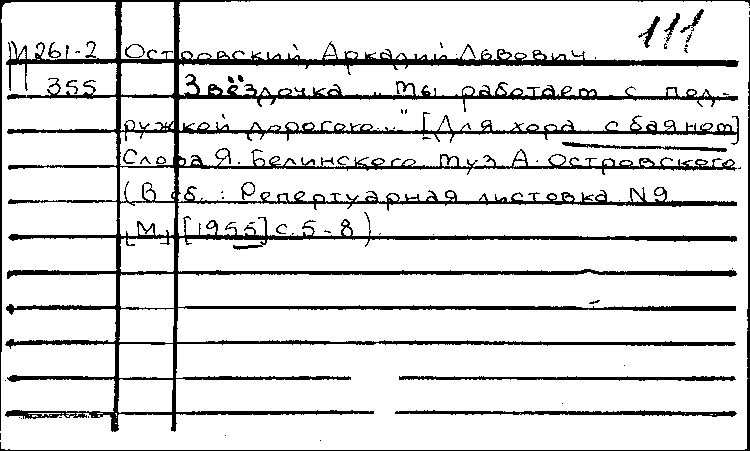 111
М 261-2 Островский, Аркадий Львович
355 Звёздочка „Мы работаем с под-
ружкой дорогою..." [Для хора с баяном]
Слова Я. Белинского. Муз А. Островского
(В сб.: Репертуарная листовка N9
[М.] [1955] с. 5-8)